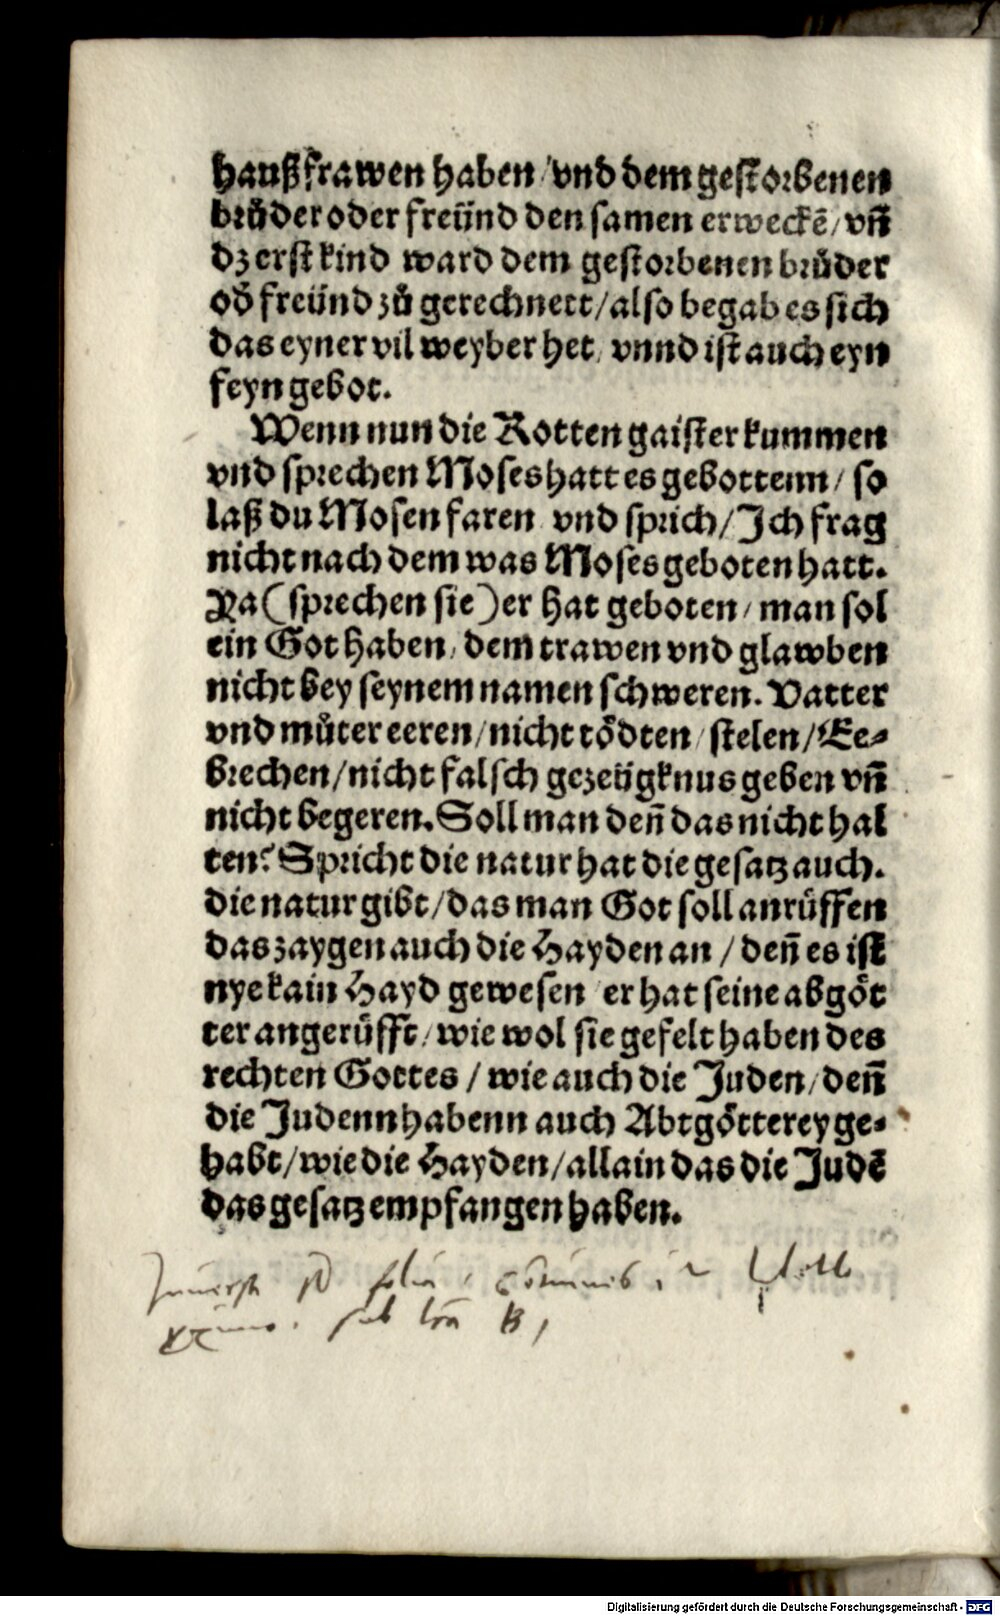 haußfrawen haben / vnd dem gestorbenen
brůder oder freünd den samen erweckē / vñ
dz erst kind ward dem gestorbenen brůder
oď freünd zů gerechnett / also begab es sich
das eyner vil weyber het / vnnd ist auch eyn
feyn gebot.
Wenn nun die Rotten gaister kummen
vnd sprechen Moses hatt es gebottenn / so
laß du Mosen faren vnd sprich / Ich frag
nicht nach dem was Moses geboten hatt.
Ya (sprechen sie) er hat geboten / man sol
ein Got haben / dem trawen vnd glawben
nicht bey seynem namen schweren. Vatter
vnd můter eeren / nicht tödten / stelen / Ee⸗
brechen / nicht falsch gezeügknus geben vñ
nicht begeren. Soll man deñ das nicht hal
ten? Spricht die natur hat die gesatz auch.
die natur gibt / das man Got soll anrüffen
das zaygen auch die Hayden an / deñ es ist
nye kain Hayd gewesen er hat seine abgöt
ter angerüfft / wie wol sie gefelt haben des
rechten Gottes / wie auch die Juden / deñ
die Judenn habenn auch Abtgötterey ge⸗
habt / wie die Hayden / allain das die Judē
das gesatz empfangen haben.
folia
sub B
Digitalisierung gefördert durch die Deutsche Forschungsgemeinschaft - DFG